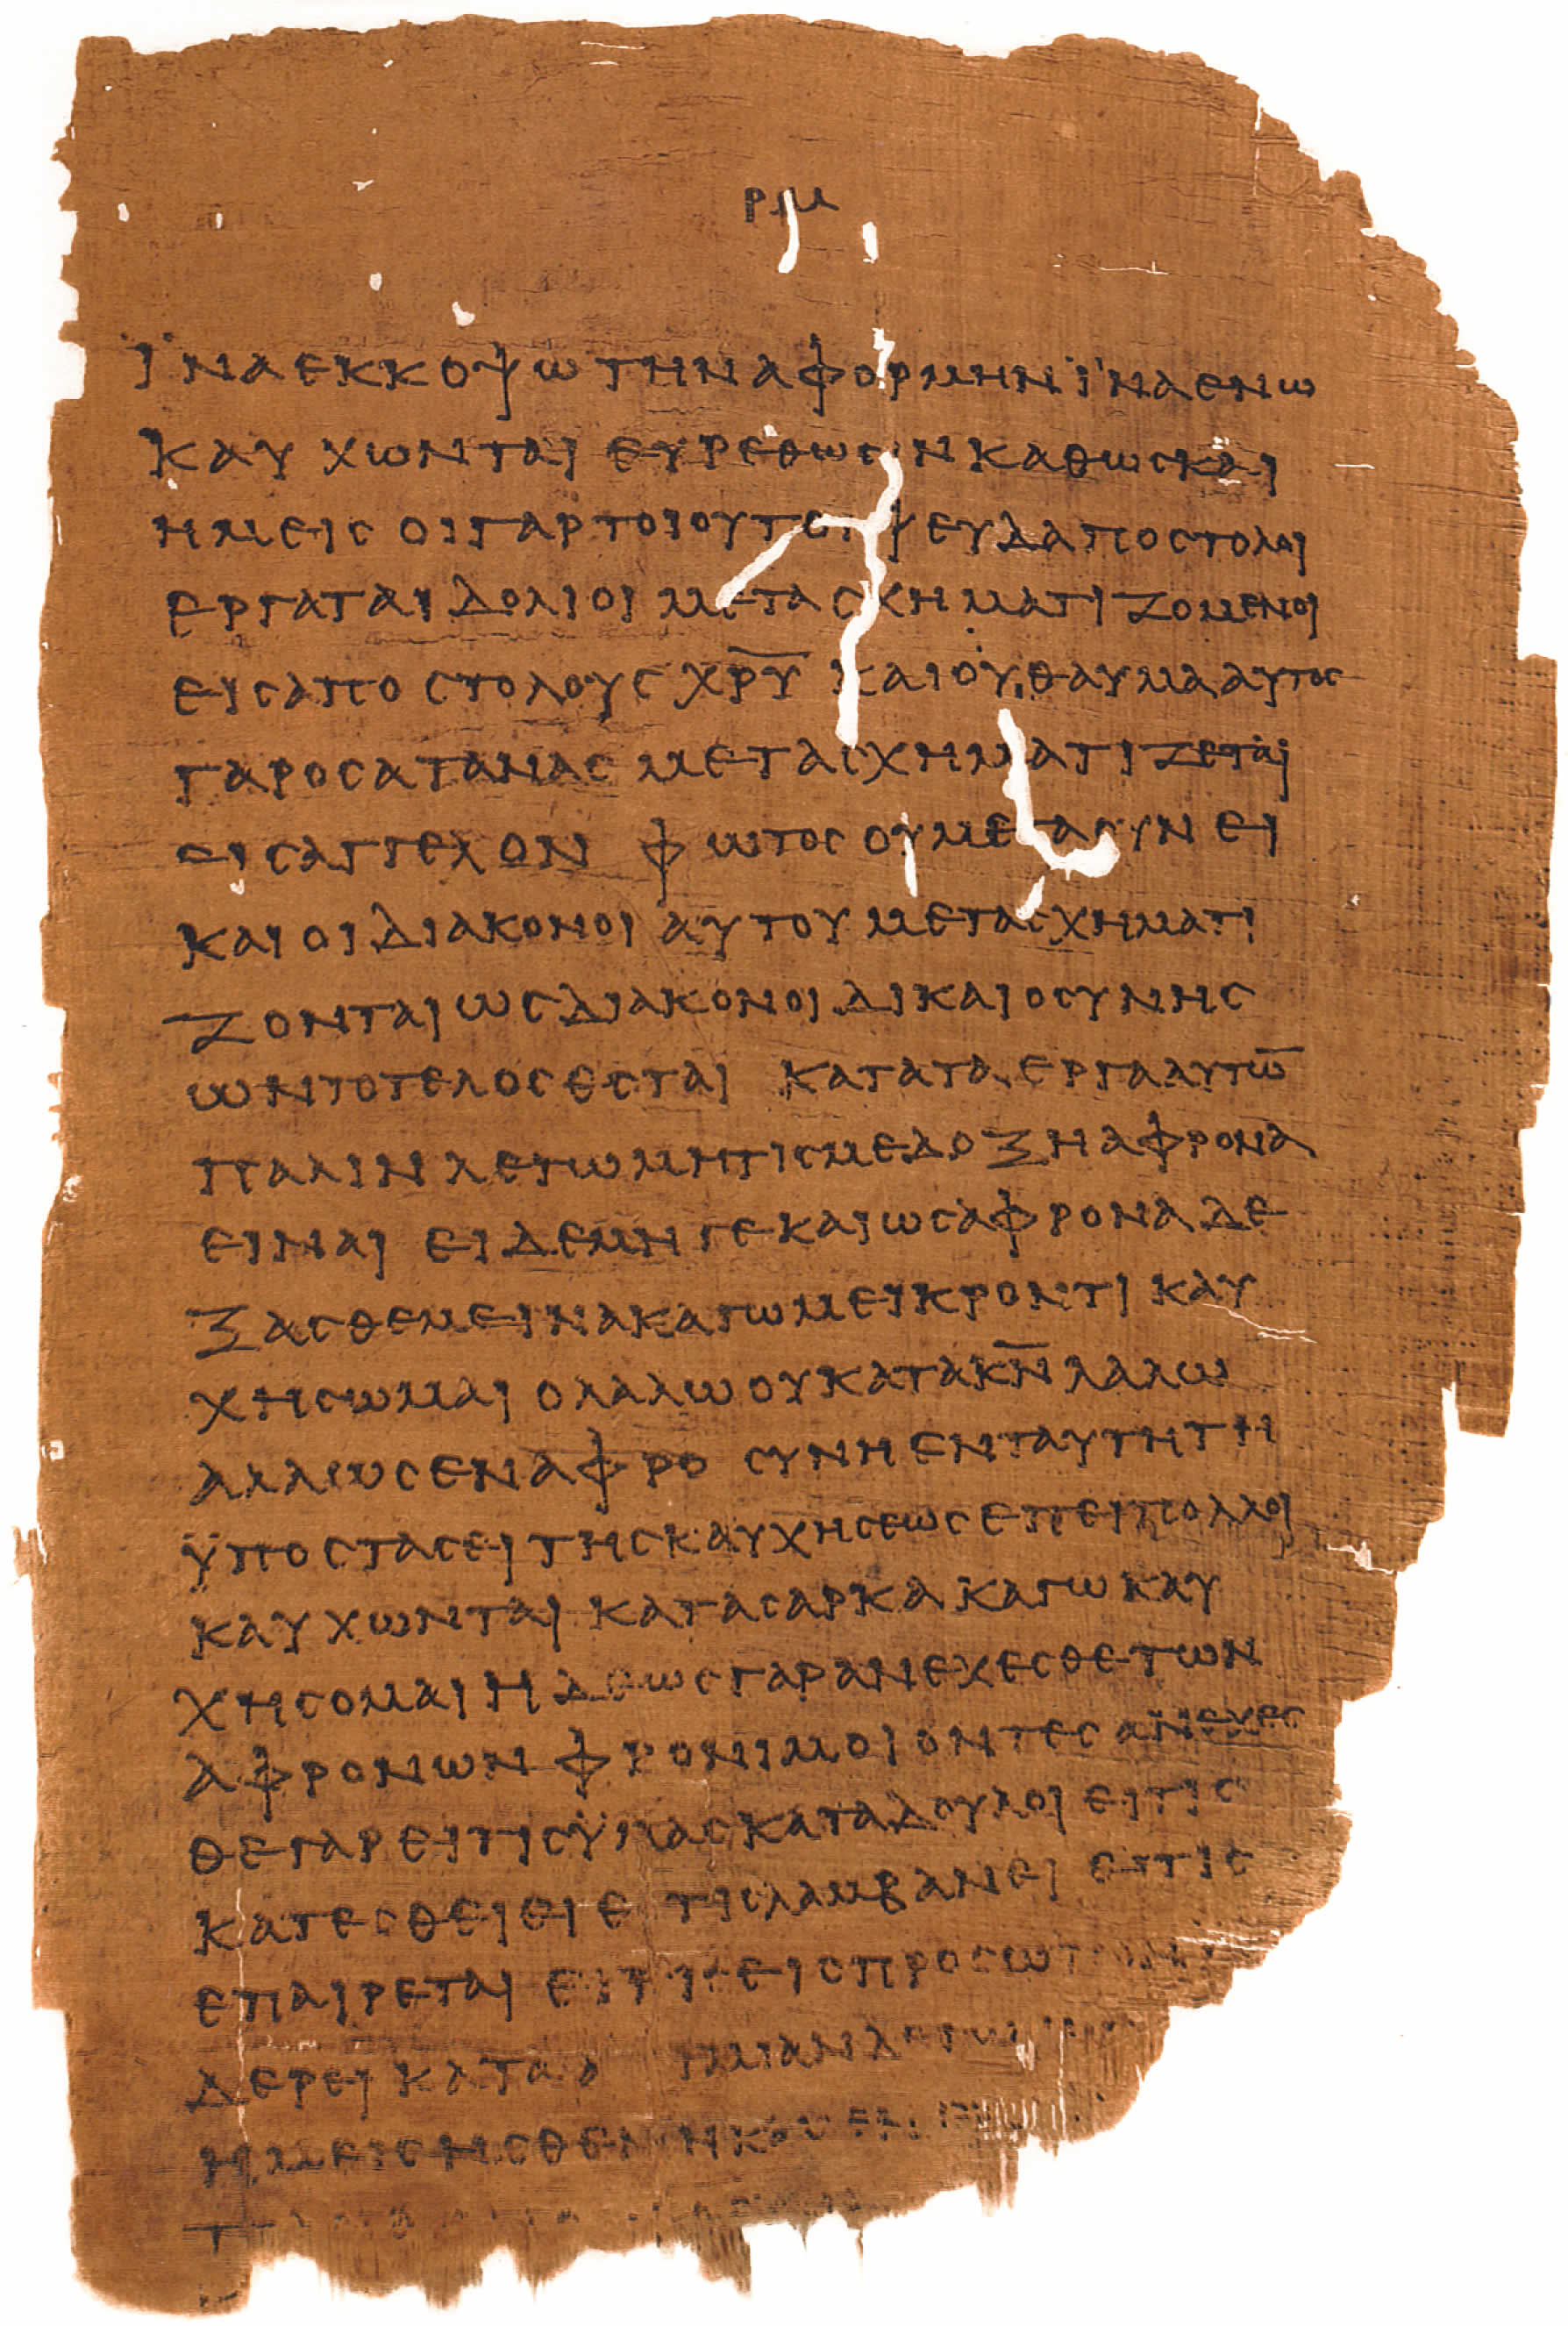 ρμ
ϊνα εκκοψω την αφορμην ϊνα εν ω
καυχωνται ευρεθωσιν καθως και
ημεις οι γαρ τοιουτοι ψευδαποστολοι
εργαται δολιοι μετασχηματιζομενοι
εις αποστολους χρ̅υ̅ και ου θαυμα αυτος
γαρ ο σατανας μετασχηματιζεται
εις αγγελον φωτος ου μεγα ουν ει
και οι διακονοι αυτου μετασχηματι
ζονται ως διακονοι δικαιοσυνης
ων το τελος εσται κατα τα εργα αυτω̅
παλιν λεγω μη τις με δοξη αφρονα
ειναι ει δε μη γε και ως αφρονα δε
ξασθε με ινα καγω μεικρον τι καυ
χησωμαι ο λαλω ου κατα κ̅ν̅ λαλω
αλλ ως εν αφροσυνη εν ταυτη τη
ϋποστασει της καυχησεως επει πολλοι
καυχωνται κατα σαρκα καγω καυ
χησομαι ηδεως γαρ ανεχεσθε των
αφρονων φρονιμοι οντες ανεχεσ
θε γαρ ει τις ϋμας καταδουλοι ει τις
κατεσθειει ει τις λαμβανει ει τις
επαιρεται ει τις εις προσωπον
δερει κατα
ημεις